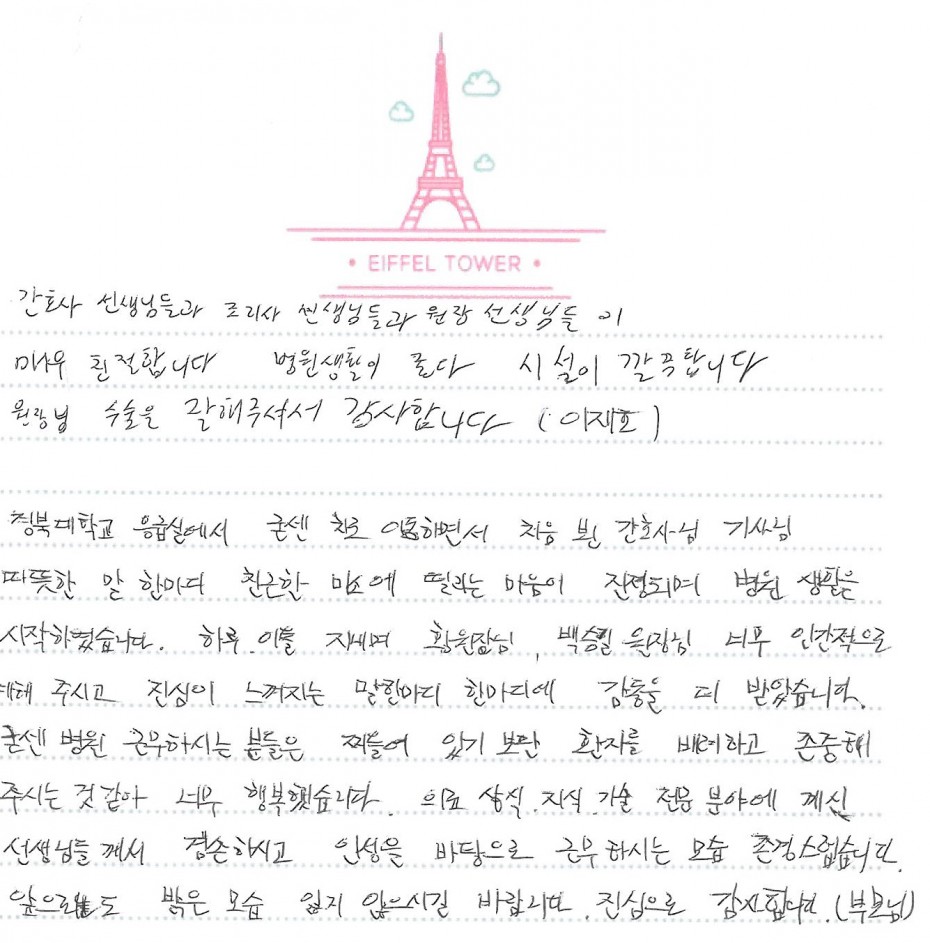 EIFFEL TOWER
간호사 선생님들과 조리사 선생님들과 원장 선생님들 이
매우 친절합니다 병원생활이 좋다 시설이 깔끔합니다
원장님 수술을 잘해주셔서 감사합니다 (이재호)
대학교 응급실에서 굳센 으로 이동하면서 처음 뵌 간호사님 기사님
따뜻한 말 한마디 친근한 미소에 떨리는 마음이 진정되며 병원 생활을
시작하였습니다. 하루.이틀 지내며 황원장님, 원장님 너무 인간적으로
대해 주시고 진심이 느껴지는 말한마디 한마디에 감동을 더 받았습니다.
굳센 병원 근무하시는 분들은 찌들어 있기 보단 환자를 배려하고 존중해
주시는 것 같아 너무 행복했습니다. 의료 상식.지식.기술 전문 분야에 계신
선생님들께서 겸손하시고 인성을 바탕으로 근무하시는 모습 존경스럽습니다.
앞으로도 밝은 모습 잃지 않으시길 바랍니다. 진심으로 감사합니다.(부모님)